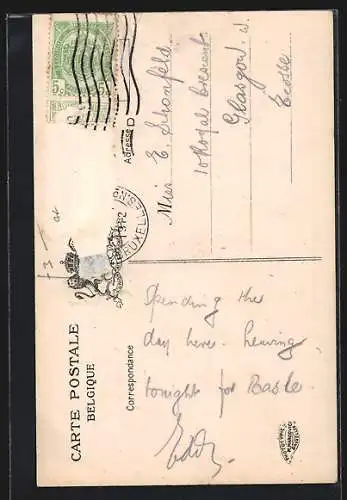 CARTE POSTALE
BELGIQUE
Correspondance
Adresse
BRUXELLES
Spending the
day here. Leaving
tonight for Basle.
Miss E. Schonfeld
10 Royal Crescent
Glasgow. W.
Ecosse